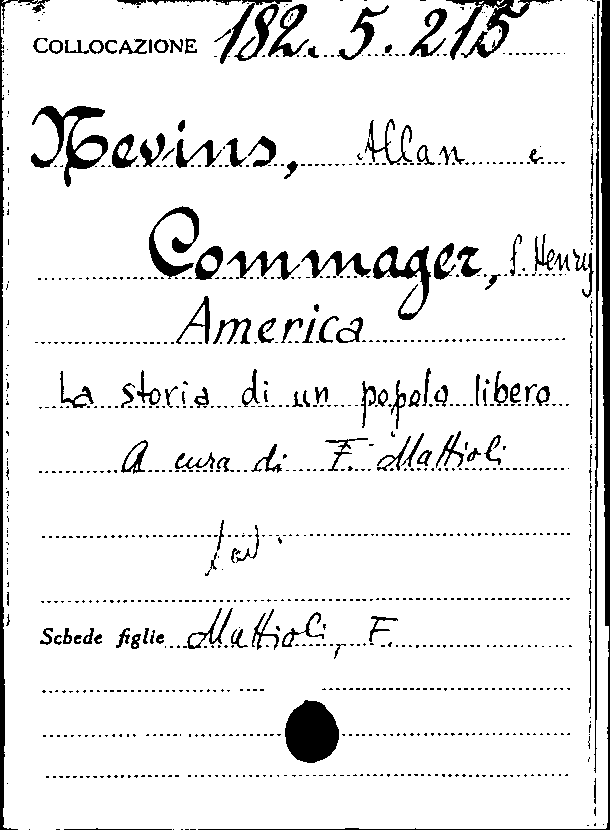 COLLOCAZIONE 182.5.215
Nevins, Allan e
Commager, S. Henry
America
La storia di un popolo libero
A cura di F. Mattioli
Schede figlie Mattioli, F.